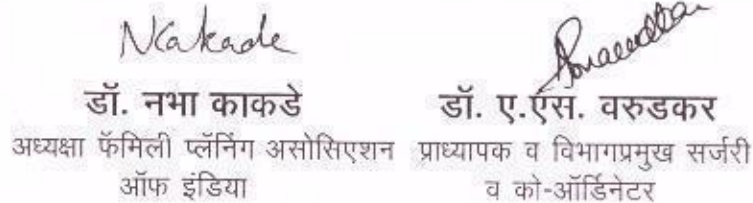 NKakade
डॉ. नभा काकडे
अध्यक्षा फॅमिली प्लॅनिंग असोसिएशन
ऑफ इंडिया
डॉ. ए.एस. वरुडकर
प्राध्यापक व विभागप्रमुख सर्जरी
व को-ऑर्डिनेटर